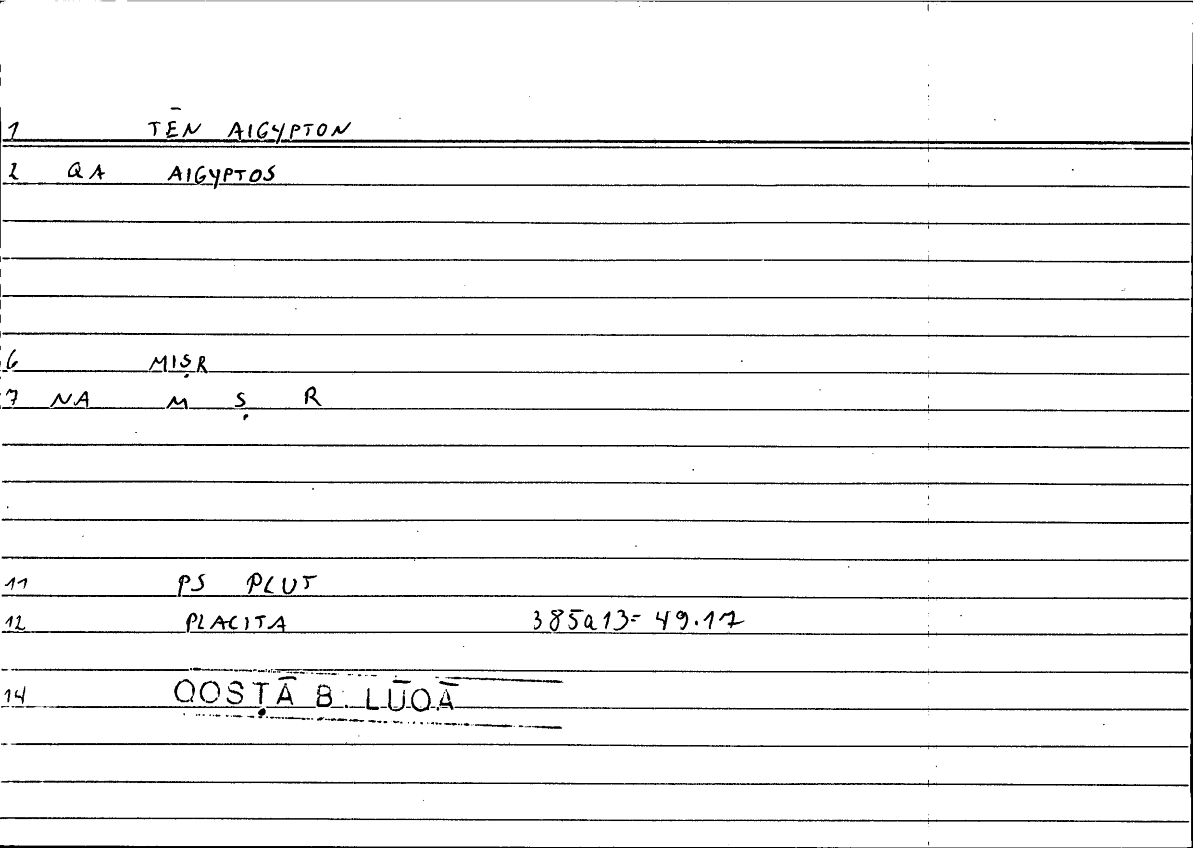 1 TĒN AIGYPTON
2 QA AIGYPTOS
6 MIṢR
7 NA M Ṣ R
11 PS PLUT
12 PLACITA 385a13= 49.17
14 QOSṬĀ B. LŪQĀ